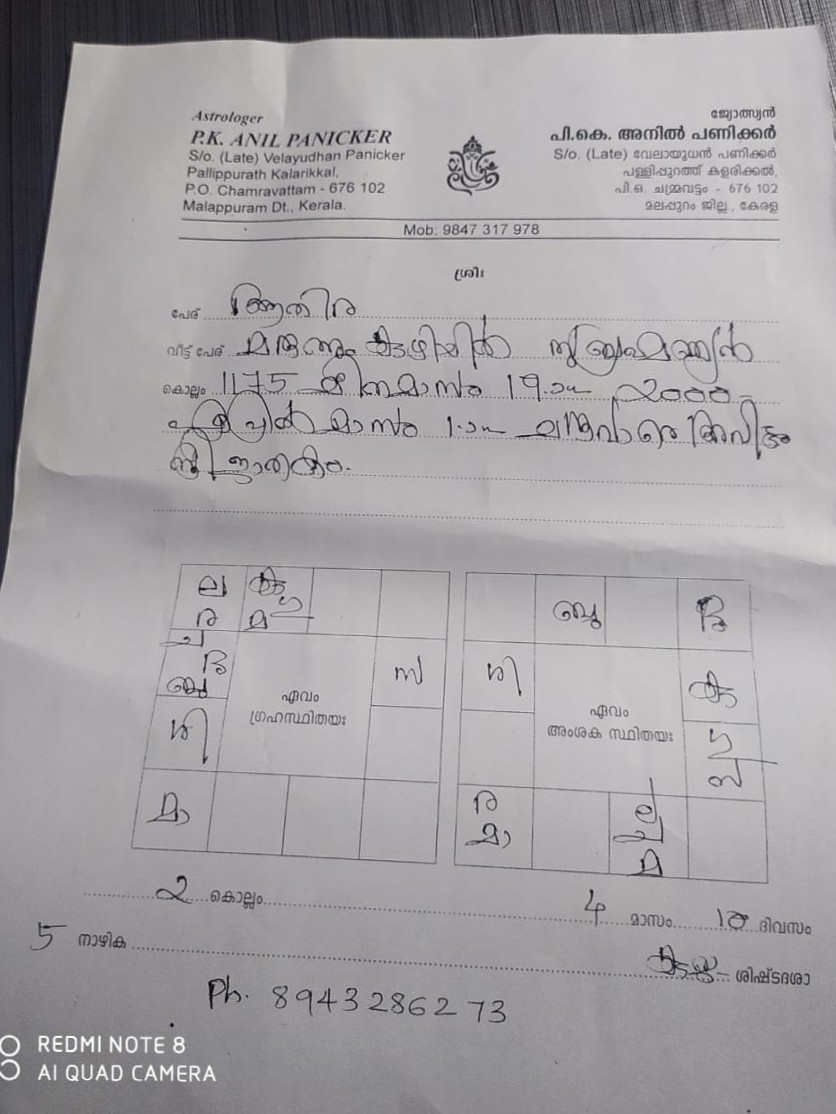 Astrologer
P.K. ANIL PANICKER
S/o. (Late) Velayudhan Panicker
Pallippurath Kalarikkal,
P.O. Chamravattam - 676 102
Malappuram Dt., Kerala.
ജ്യോത്സ്യൻ
പി.കെ. അനിൽ പണിക്കർ
S/o. (Late) വേലായുധൻ പണിക്കർ
പള്ളിപ്പുറത്ത് കളരിക്കൽ,
പി.ഒ. ചമ്രവട്ടം - 676 102
മലപ്പുറം ജില്ല, കേരള
Mob: 9847 317 978
ശ്രീഃ
പേര് ആതിര
വീട്ട് പേര്
കൊല്ലം 1175 മീനമാസം 19.ാം 2000
ഏപ്രിൽ മാസം 1.ാം
സ്ത്രീ ജാതകം.
ല കു
ര മ
ശി സ
മാ
ഏവം
ഗ്രഹസ്ഥിതയഃ
ബു
ശി
ര
മാ
മ
ഏവം
അംശക സ്ഥിതയഃ
2 കൊല്ലം 4 മാസം 18 ദിവസം
5 നാഴിക ശിഷ്ടദശാ
Ph. 8943286273
REDMI NOTE 8
AI QUAD CAMERA